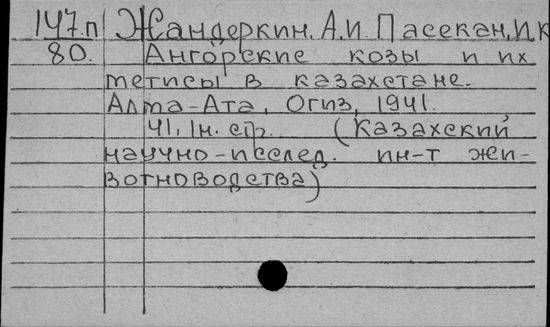 147.п Жандеркин. А.И. Пасекан, И.К
80. Ангорские козы и их
метисы в казахстане.
Алма-Ата, Огиз, 1941.
41, 1н. стр. (Казахский
научно-исслед. ин-т жи-
вотноводства)